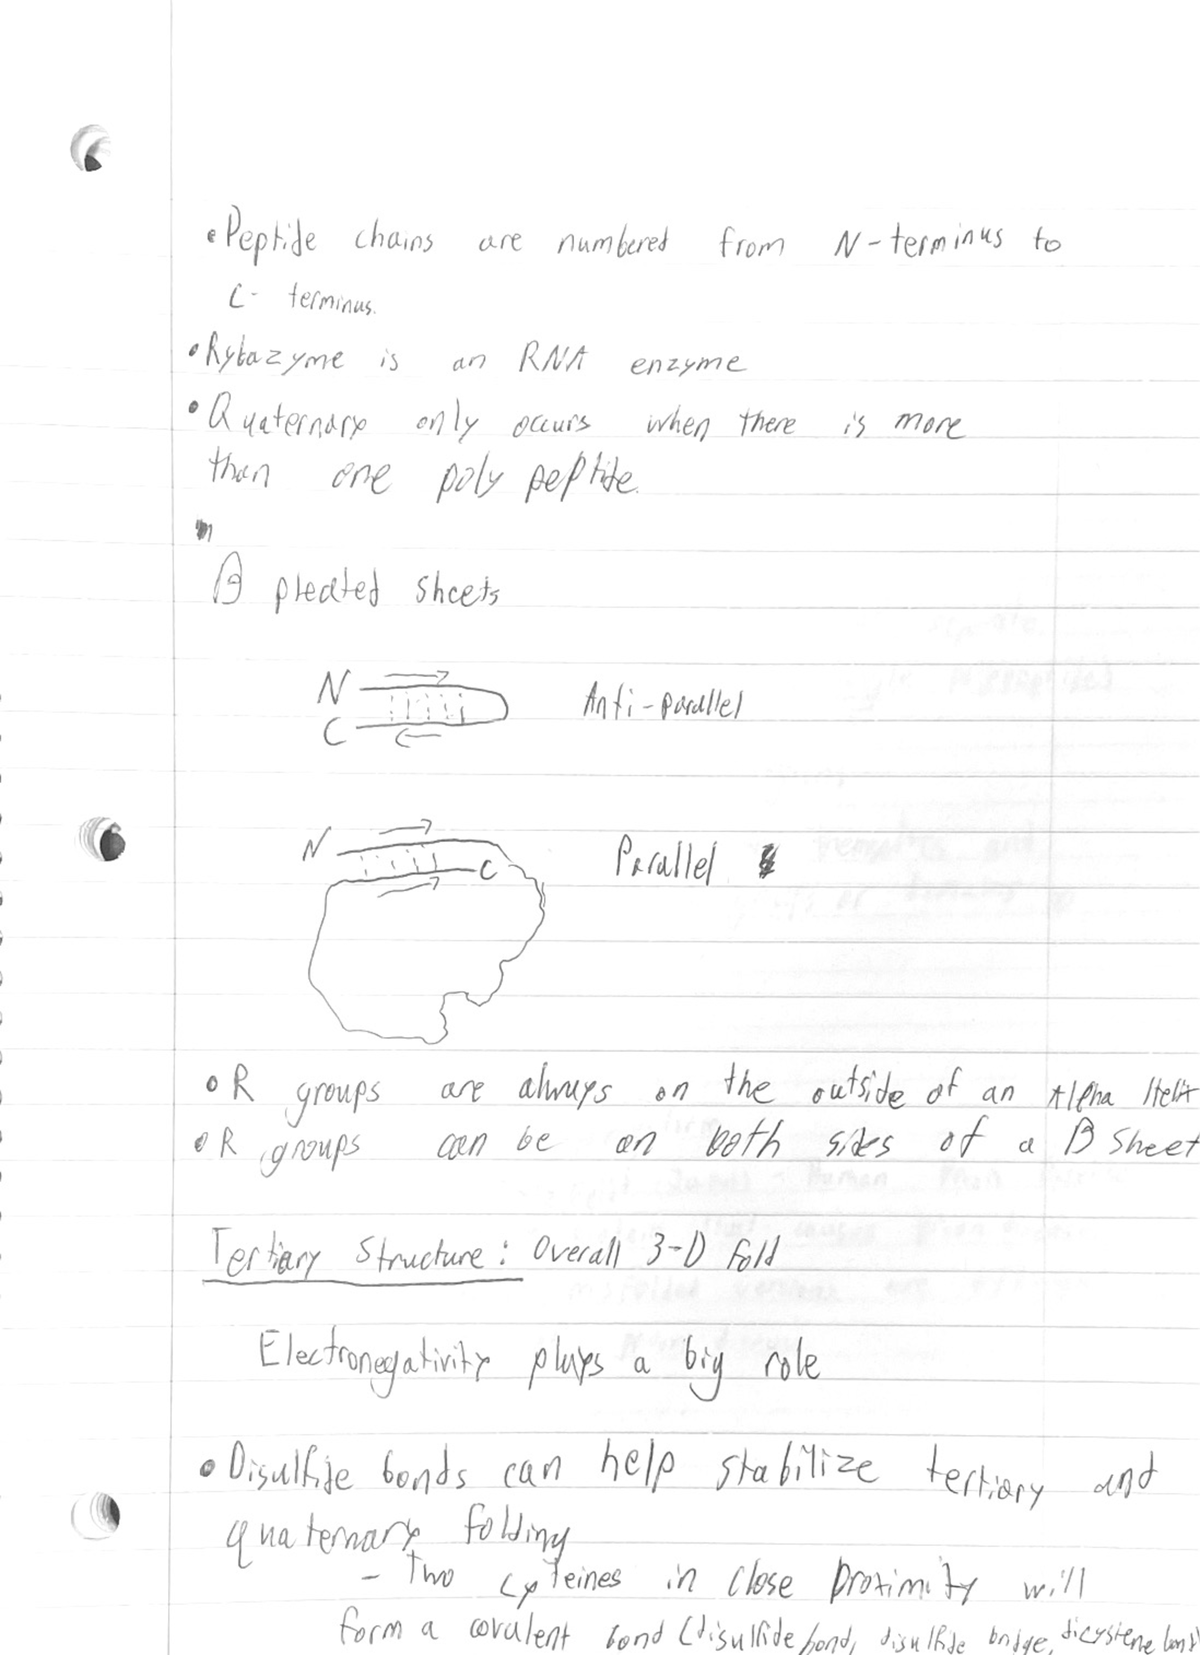 • Peptide chains are numbered from N-terminus to
C- terminus.
• Rybazyme is an RNA enzyme
• Quaternary only occurs when there is more
than one poly peptide.
β pleated sheets
N
Anti-parallel
C
N
Parallel
C
• R groups are always on the outside of an Alpha Helix
• R groups can be on both sides of a β sheet
Tertiary Structure: Overall 3-D fold
Electronegativity plays a big role
• Disulfide bonds can help stabilize tertiary and
quaternary folding
- Two cyteines in close proximity will
form a covalent bond (disulfide bond, disulfide bridge, dicysteine bond)